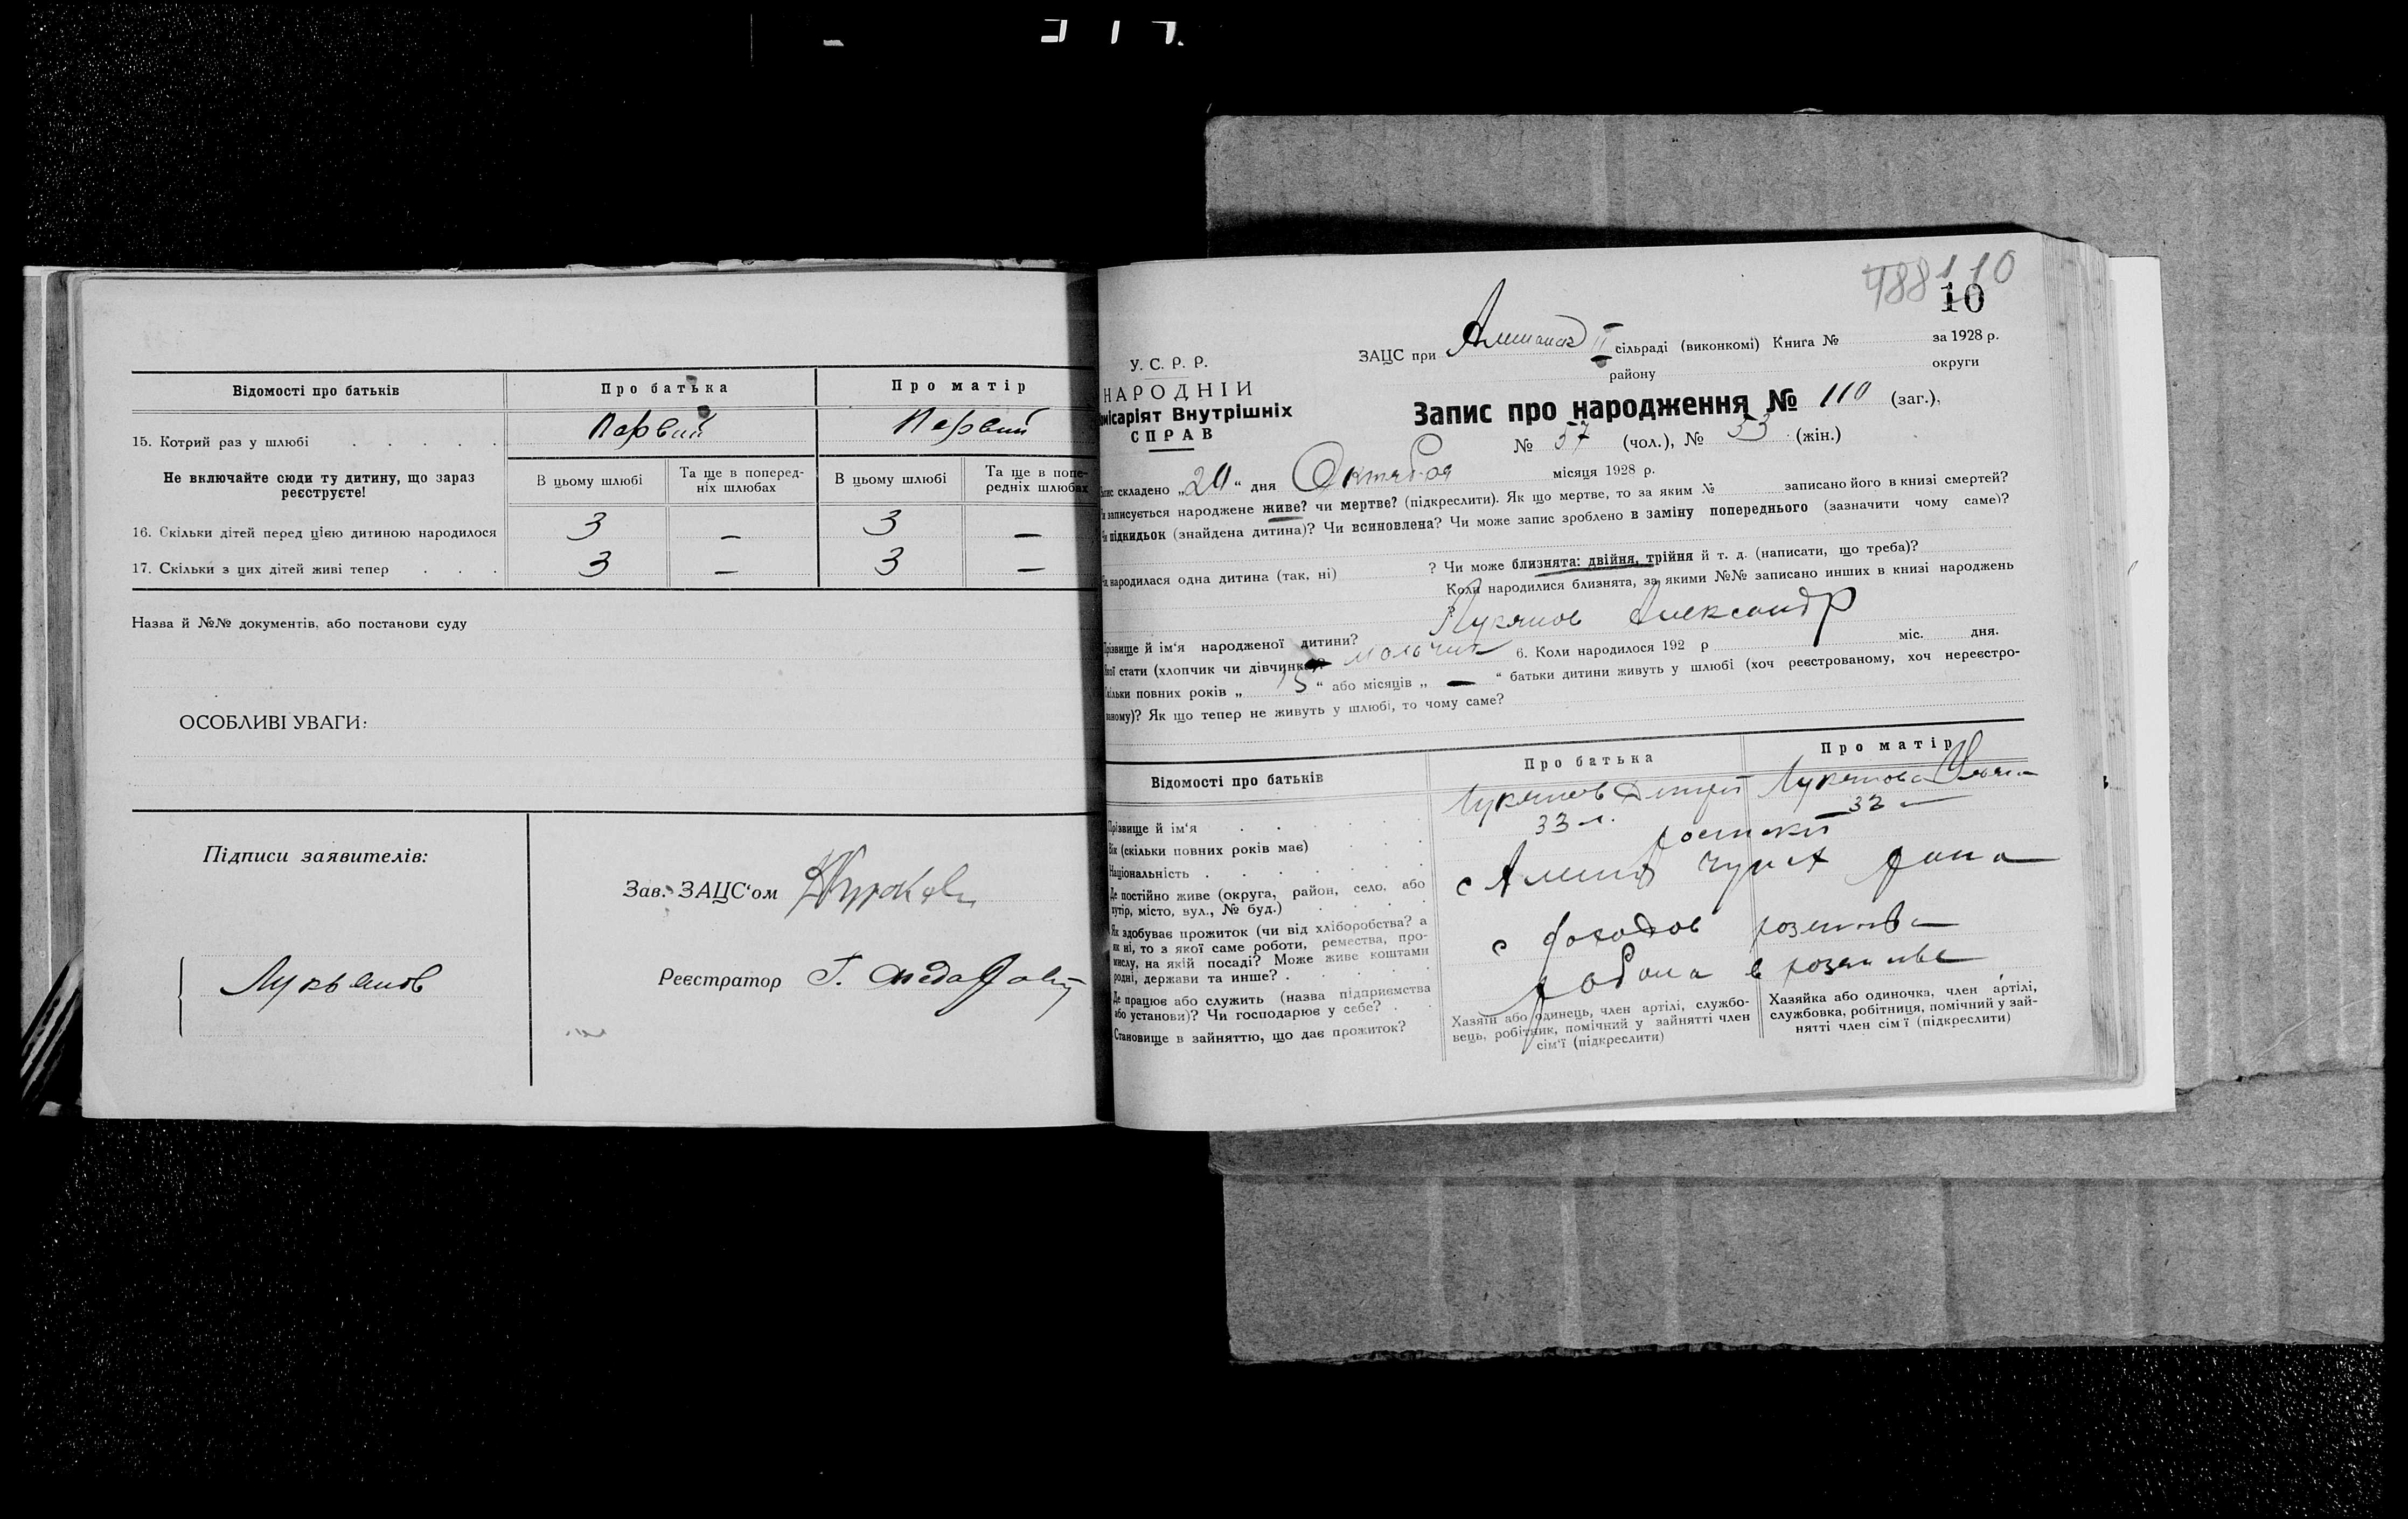 Відомості про батьків
Про батька
Про матір
15. Котрий раз у шлюбі
Первий
Первий
Не включайте сюди ту дитину, що зараз
реєструєте!
В цьому шлюбі
Та ще в поперед-
ніх шлюбах
В цьому шлюбі
Та ще в попе-
редніх шлюбах
16. Скільки дітей перед цією дитиною народилося
3
—
3
—
17. Скільки з цих дітей живі тепер
3
—
3
—
Назва й №№ документів, або постанови суду
ОСОБЛИВІ УВАГИ:
Підписи заявителів:
Лукьянов
Зав. ЗАЦС'ом
Реєстратор Г.
488 110
10
У. С. Р. Р.
НАРОДНІЙ
місаріят Внутрішніх
СПРАВ
ЗАЦС при II сільраді (виконкомі) Книга № за 1928 р.
району округи
Запис про народження № 110 (заг.),
№ 57 (чол.), № 53 (жін.)
складено „20“ дня Октября місяця 1928 р.
записується народжене живе? чи мертве? (підкреслити). Як що мертве, то за яким № записано його в книзі смертей?
підкидьок (знайдена дитина)? Чи всиновлена? Чи може запис зроблено в заміну попереднього (зазначити чому саме)?
народилася одна дитина (так, ні) ? Чи може близнята: двійня, трійня й т. д. (написати, що треба)?
Коли народилися близнята, за якими №№ записано инших в книзі народжень
Лукянов Александр
Прізвище й ім'я народженої дитини?
стати (хлопчик чи дівчинка)? мальчик 6. Коли народилося 192 р міс. дня.
Скільки повних років „ 15 “ або місяців „ — “ батьки дитини живуть у шлюбі (хоч реєстрованому, хоч нереєстро-
ваному)? Як що тепер не живуть у шлюбі, то чому саме?
Відомості про батьків
Про батька
Про матір
Прізвище й ім'я
Лукянов
Лукянова
Вік (скільки повних років має)
33 л.
32
Національність
Де постійно живе (округа, район, село, або
хутір, місто, вул., № буд.)
с
Як здобуває прожиток (чи від хліборобства? а
як ні, то з якої саме роботи, ремества, про-
мислу, на якій посаді? Може живе коштами
родні, держави та инше?
с
Де працює або служить (назва підприємства
або установи)? Чи господарює у себе?
в
Становище в зайняттю, що дає прожиток?
Хазяїн або одинець, член артілі, службо-
вець, робітник, помічний у зайнятті член
сім'ї (підкреслити)
Хазяйка або одиночка, член артілі,
службовка, робітниця, помічний у зай-
нятті член сім'ї (підкреслити)